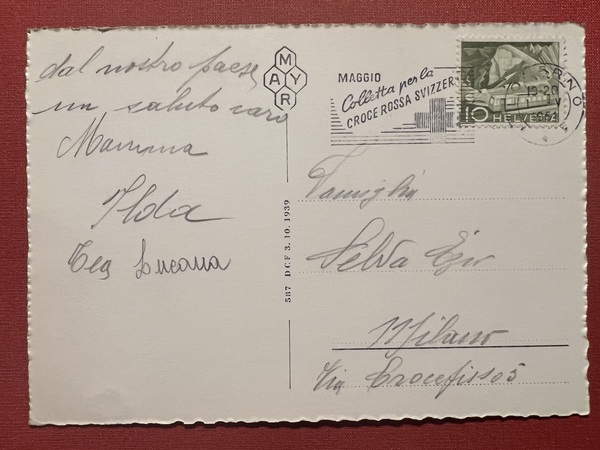 dal nostro paese
un saluto caro
Mamma
Ilda
Lucana
MAYR
587 DCF 3.10.1939
MAGGIO
Colletta per la
CROCE ROSSA SVIZZERA
19-20
10 HELVETIA
Famiglia
Selva
Milano
Via Crocefisso 5